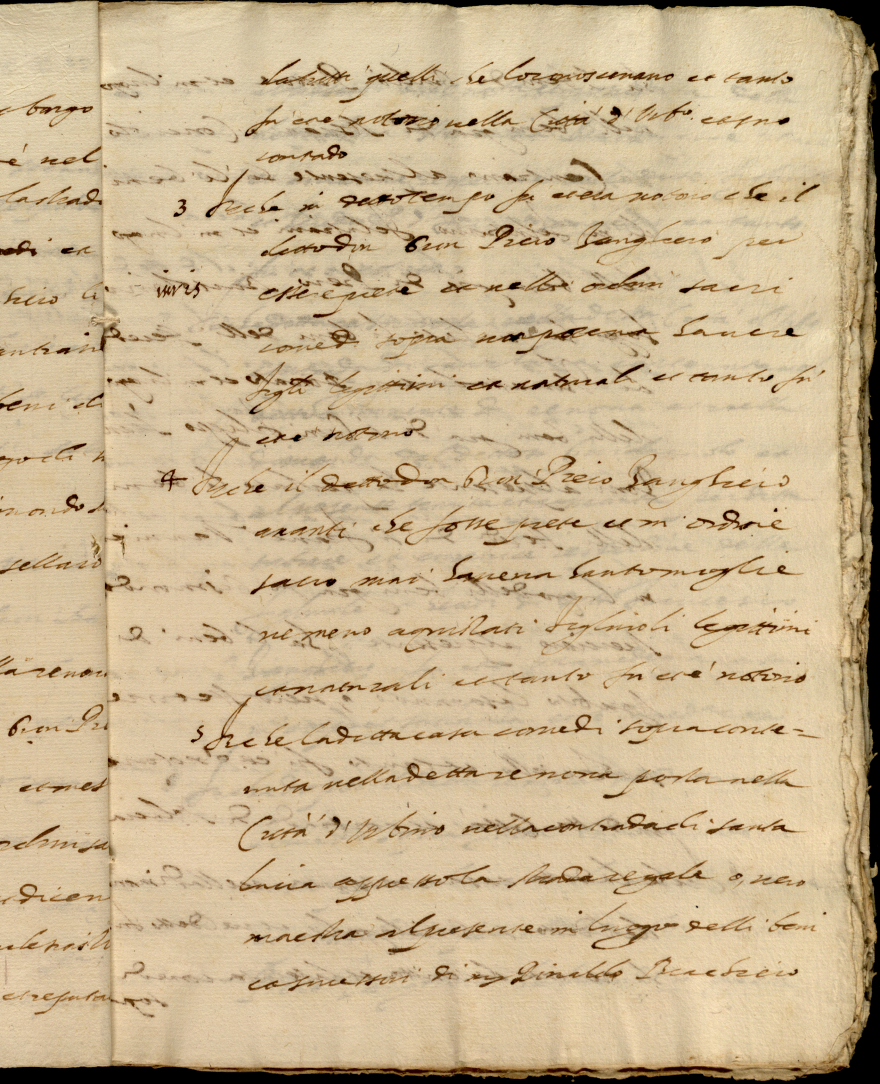 da tutti quelli che lo conoscevano et tanto
fu et è notorio nella Città d'Urb.o et suo
contado
3 Che in detto tempo fu et era notorio che il
detto don Gian Piero Pangherio per
iuris essere prete et nelli ordini sacri
come di sopra non poteva havere
figli legittimi et naturali et tanto fu
et è notorio
4 Che il detto don Gian Piero Pangherio
avanti che fosse prete et in ordine
sacro mai haveva hauto moglie
ne meno acquistati figlioli legittimi
et naturali et tanto fu et è notorio
5 Che la detta casa come di sopra conte=
nuta nella detta renova posta nella
Città d'Urbino nella contrada di santa
Lucia appresso la strada regale o, vero
maestra al presente in luogo delli beni
et successori di Rinaldo
borgo
è nel
la strad
et
li
beni di
sellaro
la renov
Gian Pi